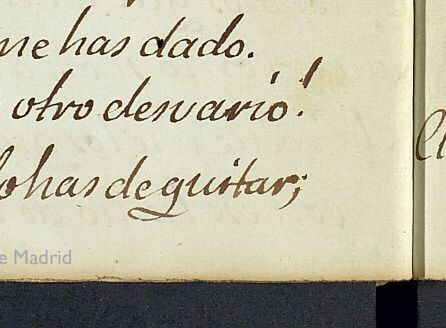 me has dado.
otro desvario!
lo has de quitar;
e Madrid